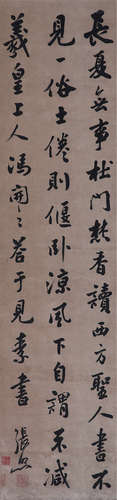 長夏無事杜門焚香讀西方聖人書不
見一俗士倦則偃卧涼風下自謂不減
羲皇上人馮開之答于見素書 張照